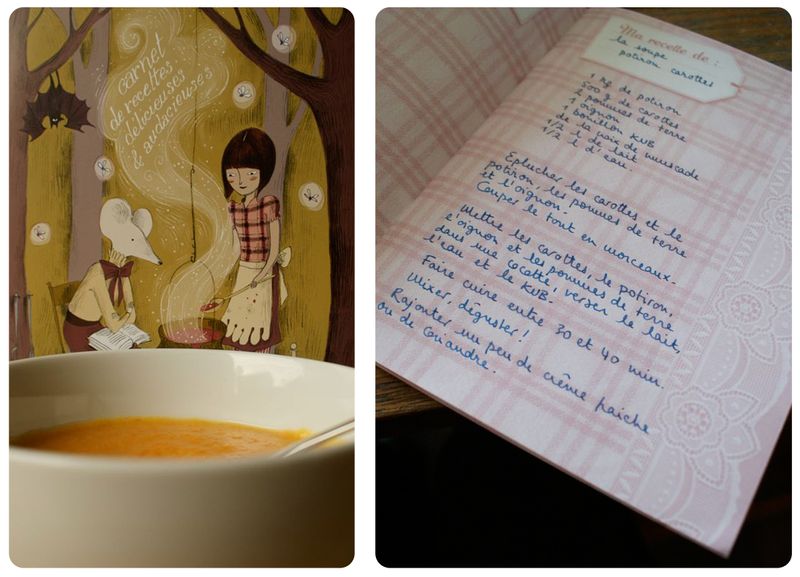 carnet
de recettes
délicieuses
& audacieuses
Ma recette de :
la soupe
potiron carottes
1 kg de potiron
500 g de carottes
2 pommes de terre
1 oignon
1 bouillon KUB
de la noix de muscade
1/2 l de lait
1/2 l d'eau.
Eplucher les carottes et le
potiron, les pommes de terre
et l'oignon.
Couper le tout en morceaux.
Mettre les carottes, le potiron,
l'oignon et les pommes de terre
dans une cocotte, verser le lait,
l'eau et le KUB.
Faire cuire entre 30 et 40 min.
Mixer, déguster!
Rajouter un peu de crême fraiche
ou de coriandre.